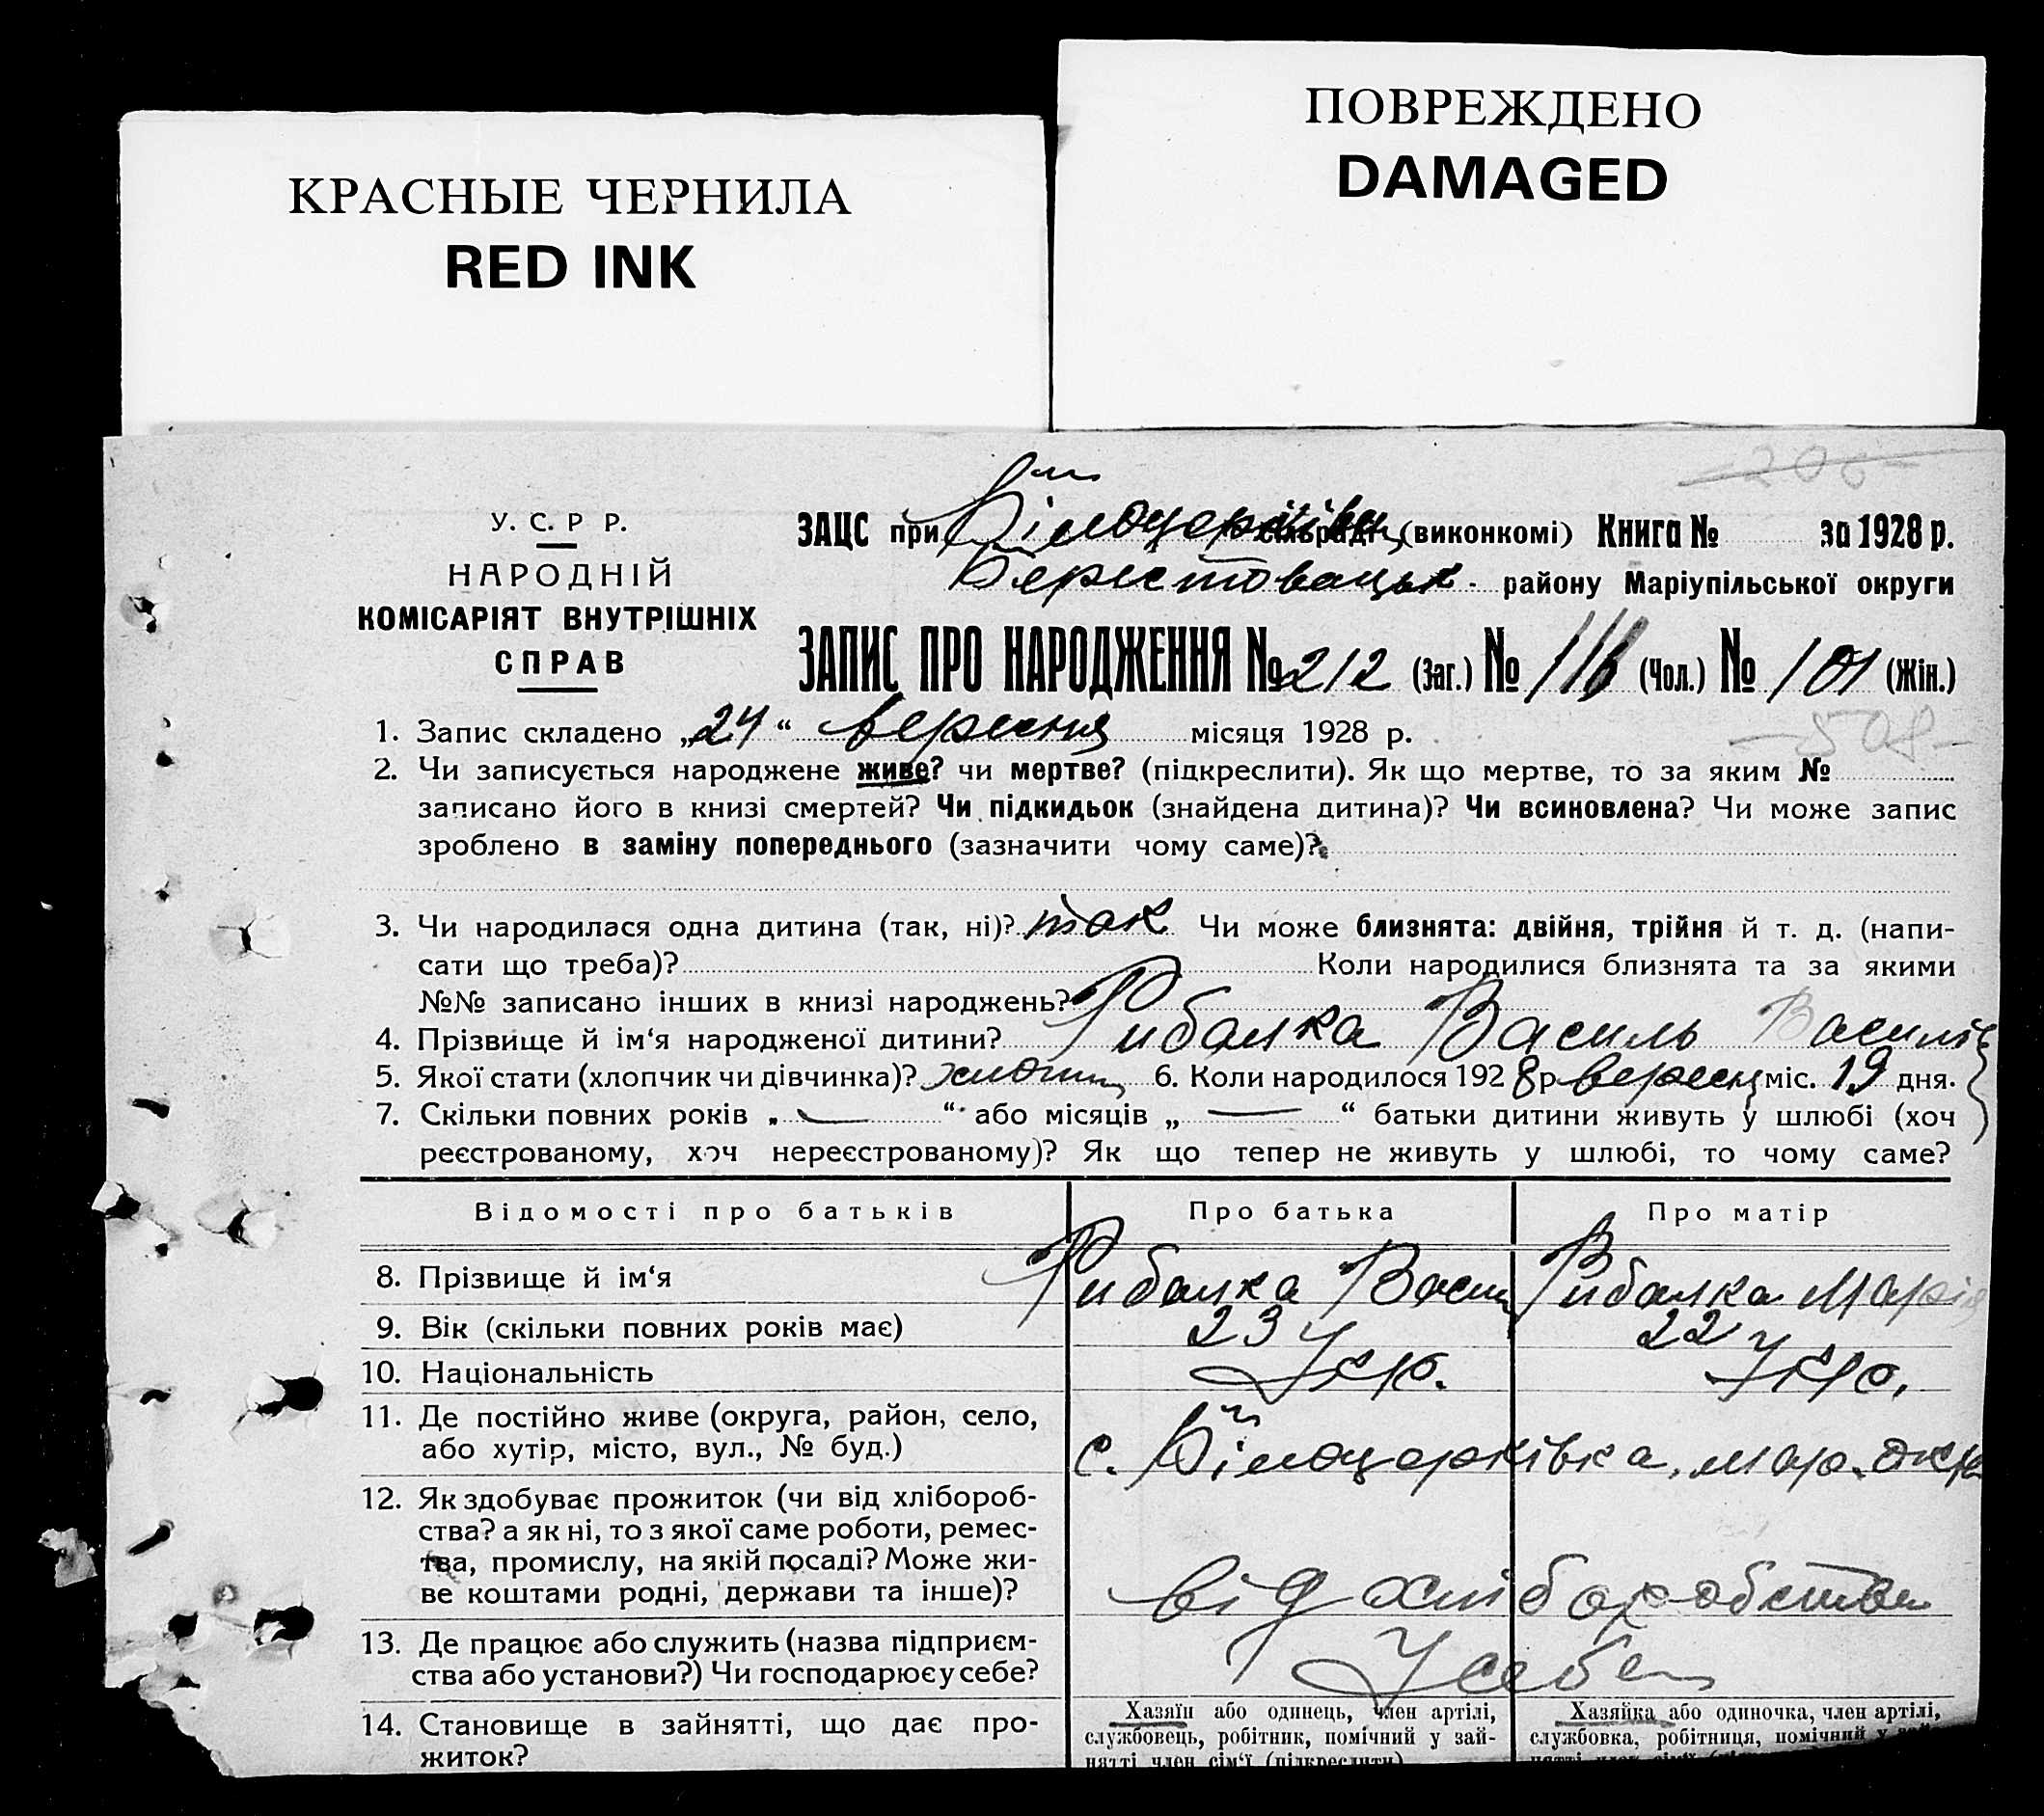 ПОВРЕЖДЕНО
DAMAGED
КРАСНЫЕ ЧЕРНИЛА
RED INK
206
У. С. Р Р.
НАРОДНІЙ
КОМІСАРІЯТ ВНУТРІШНІХ
СПРАВ
ЗАЦС при Білоцерківці сільраді (виконкомі) Книга № за 1928 р.
Берестовацьк. району Маріупільської округи
ЗАПИС ПРО НАРОДЖЕННЯ № 212 (Заг.) № 111 (Чол.) № 101 (Жін.)
508
1. Запис складено „24“ вересня місяця 1928 р.
2. Чи записується народжене живе? чи мертве? (підкреслити). Як що мертве, то за яким №
записано його в книзі смертей? Чи підкидьок (знайдена дитина)? Чи всиновлена? Чи може запис
зроблено в заміну попереднього (зазначити чому саме)?
3. Чи народилася одна дитина (так, ні)? так Чи може близнята: двійня, трійня й т. д. (напи-
сати що треба)? Коли народилися близнята та за якими
№№ записано інших в книзі народжень?
4. Прізвище й ім‘я народженої дитини? Рибалка Василь Василів
5. Якої стати (хлопчик чи дівчинка)? хлопчик 6. Коли народилося 1928 р. вересня міс. 19 дня.
7. Скільки повних років „ — “ або місяців „ — “ батьки дитини живуть у шлюбі (хоч
реєстрованому, хоч нереєстрованому)? Як що тепер не живуть у шлюбі, то чому саме?
Відомості про батьків Про батька Про матір
8. Прізвище й ім‘я Рибалка Васил Рибалка Марія
9. Вік (скільки повних років має) 23 22
10. Національність Укр. Укр.
11. Де постійно живе (округа, район, село,
або хутір, місто, вул., № буд.) с. Білоцерківка, мар. окр
12. Як здобуває прожиток (чи від хлібороб-
ства? а як ні, то з якої саме роботи, ремес-
тва, промислу, на якій посаді? Може жи-
ве коштами родні, держави та інше)? від хліборобства
13. Де працює або служить (назва підприєм-
ства або установи?) Чи господарює у себе? У себе
14. Становище в зайнятті, що дає про-
житок?
Хазяїн або одинець, член артілі,
службовець, робітник, помічний у зай-
нятті член сім‘ї (підкреслити)
Хазяйка або одиночка, член артілі,
службовка, робітниця, помічний у зай-